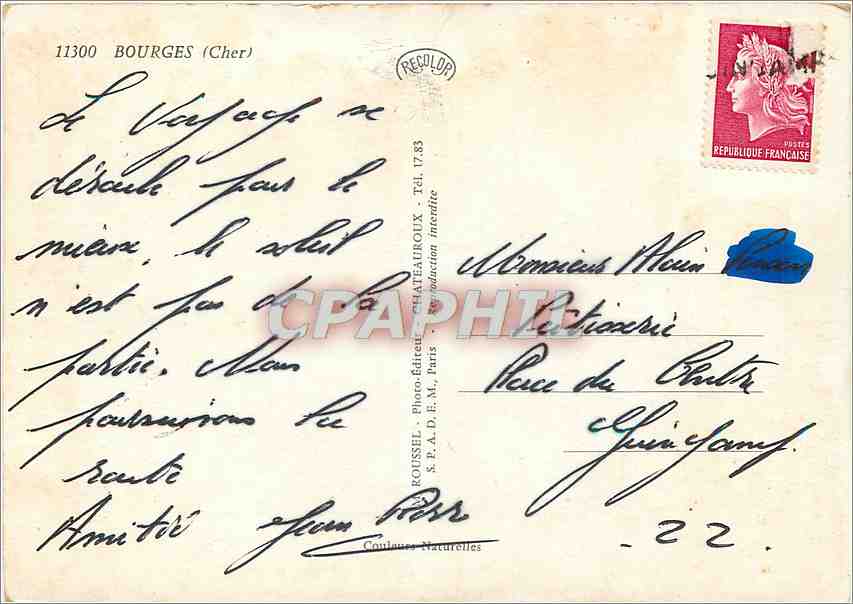 11300 BOURGES (Cher)
RECOLOR
Le voyage se
déroule pour le
mieux, le soleil
n'est pas de la
partie. Nous
poursuivons la
route
Amitié Jean Pierre
ROUSSEL - Photo-Éditeur - CHATEAUROUX - Tél. 17.83
S. P. A. D. E. M., Paris - Reproduction interdite
Couleurs Naturelles
POSTES
REPUBLIQUE FRANÇAISE
Monsieur Alain
Pâtisserie
Place du Centre
Guingamp
- 22.
CPAPHIL